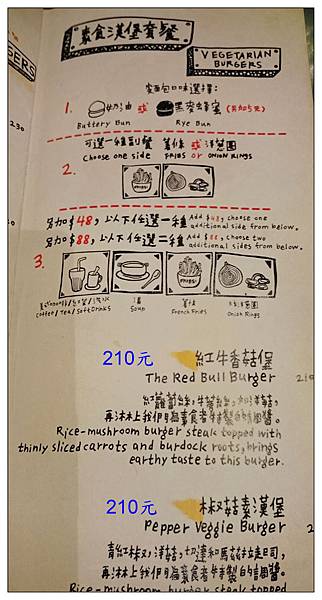 素食漢堡套餐
VEGETARIAN
BURGERS
GERS
230
麵包口味選擇:
1. 奶油 或 黑麥蜂蜜 (另加5元)
Buttery Bun Rye Bun
可選一種副餐 薯條 或 洋蔥圈
Choose one side FRIES or ONION RINGS
2.
另加$48, 以下任選一種 Add $48, choose one
additional side from below.
另加$88, 以下任選二種 Add $88, choose two
additional sides from below.
3.
湯 薯條 洋蔥圈
Coffee/Tea/Soft Drinks Soup French Fries Onion Rings
210元 紅牛香菇堡
The Red Bull Burger
紅蘿蔔絲,牛蒡絲,加洋菇,
再淋上我們為素食者特製的醬。
Rice-mushroom burger steak topped with
thinly sliced carrots and burdock roots, brings
earthy taste to this burger.
210元 椒菇素漢堡
Pepper Veggie Burger
青紅椒,洋菇,切達和馬茲瑞拉起司,
再淋上我們為素食者特製的醬。
Rice-mushroom burger steak topped